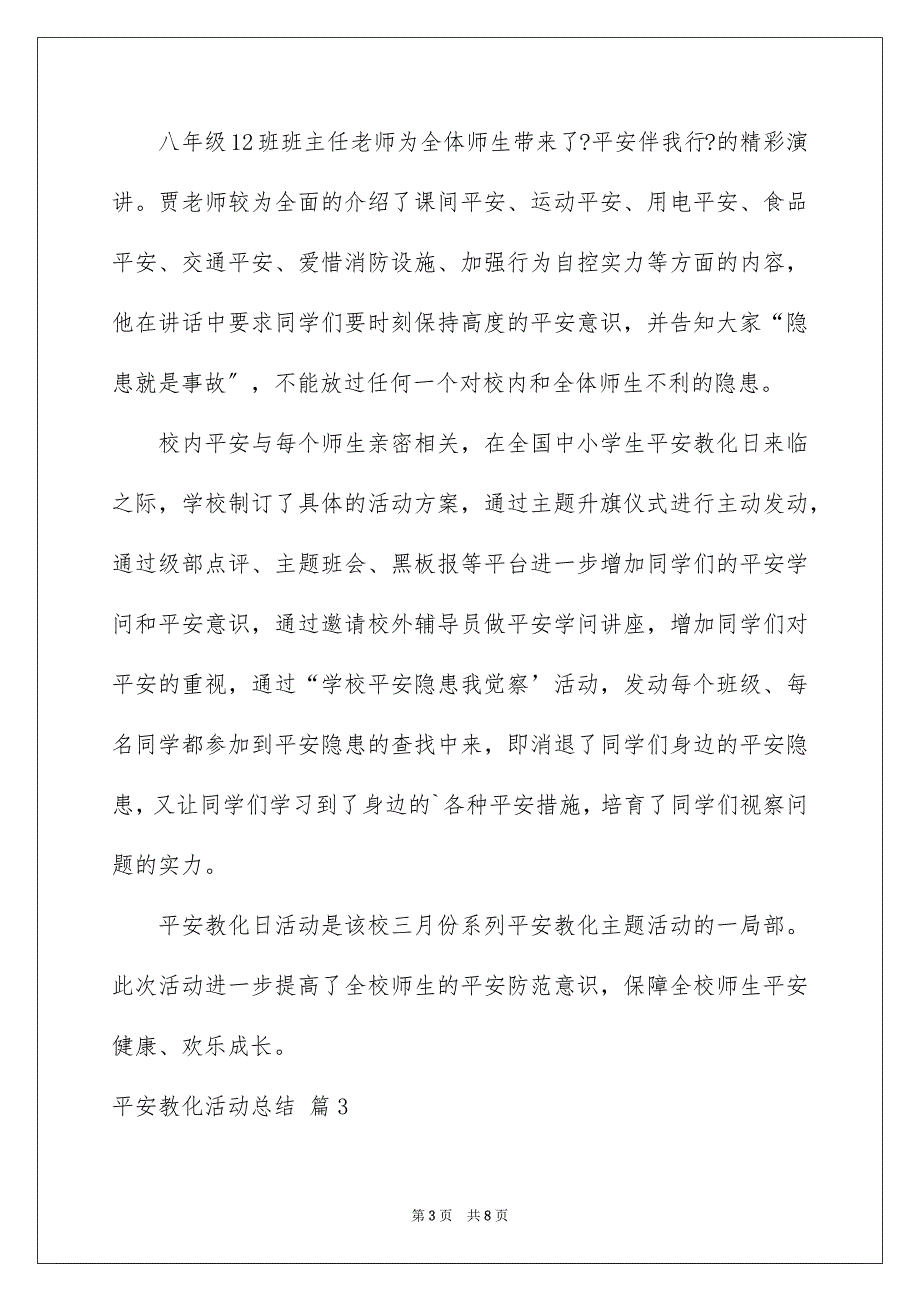 八年级12班班主任老师为全体师生带来了?平安伴我行?的精彩演
讲。贾老师较为全面的介绍了课间平安、运动平安、用电平安、食品
平安、交通平安、爱惜消防设施、加强行为自控实力等方面的内容，
他在讲话中要求同学们要时刻保持高度的平安意识，并告知大家“隐
患就是事故〞，不能放过任何一个对校内和全体师生不利的隐患。
校内平安与每个师生亲密相关，在全国中小学生平安教化日来临
之际，学校制订了具体的活动方案，通过主题升旗仪式进行主动发动，
通过级部点评、主题班会、黑板报等平台进一步增加同学们的平安学
问和平安意识，通过邀请校外辅导员做平安学问讲座，增加同学们对
平安的重视，通过“学校平安隐患我觉察’活动，发动每个班级、每
名同学都参加到平安隐患的查找中来，即消退了同学们身边的平安隐
患，又让同学们学习到了身边的`各种平安措施，培育了同学们视察问
题的实力。
平安教化日活动是该校三月份系列平安教化主题活动的一局部。
此次活动进一步提高了全校师生的平安防范意识，保障全校师生平安
健康、欢乐成长。
平安教化活动总结 篇3
第3页 共8页